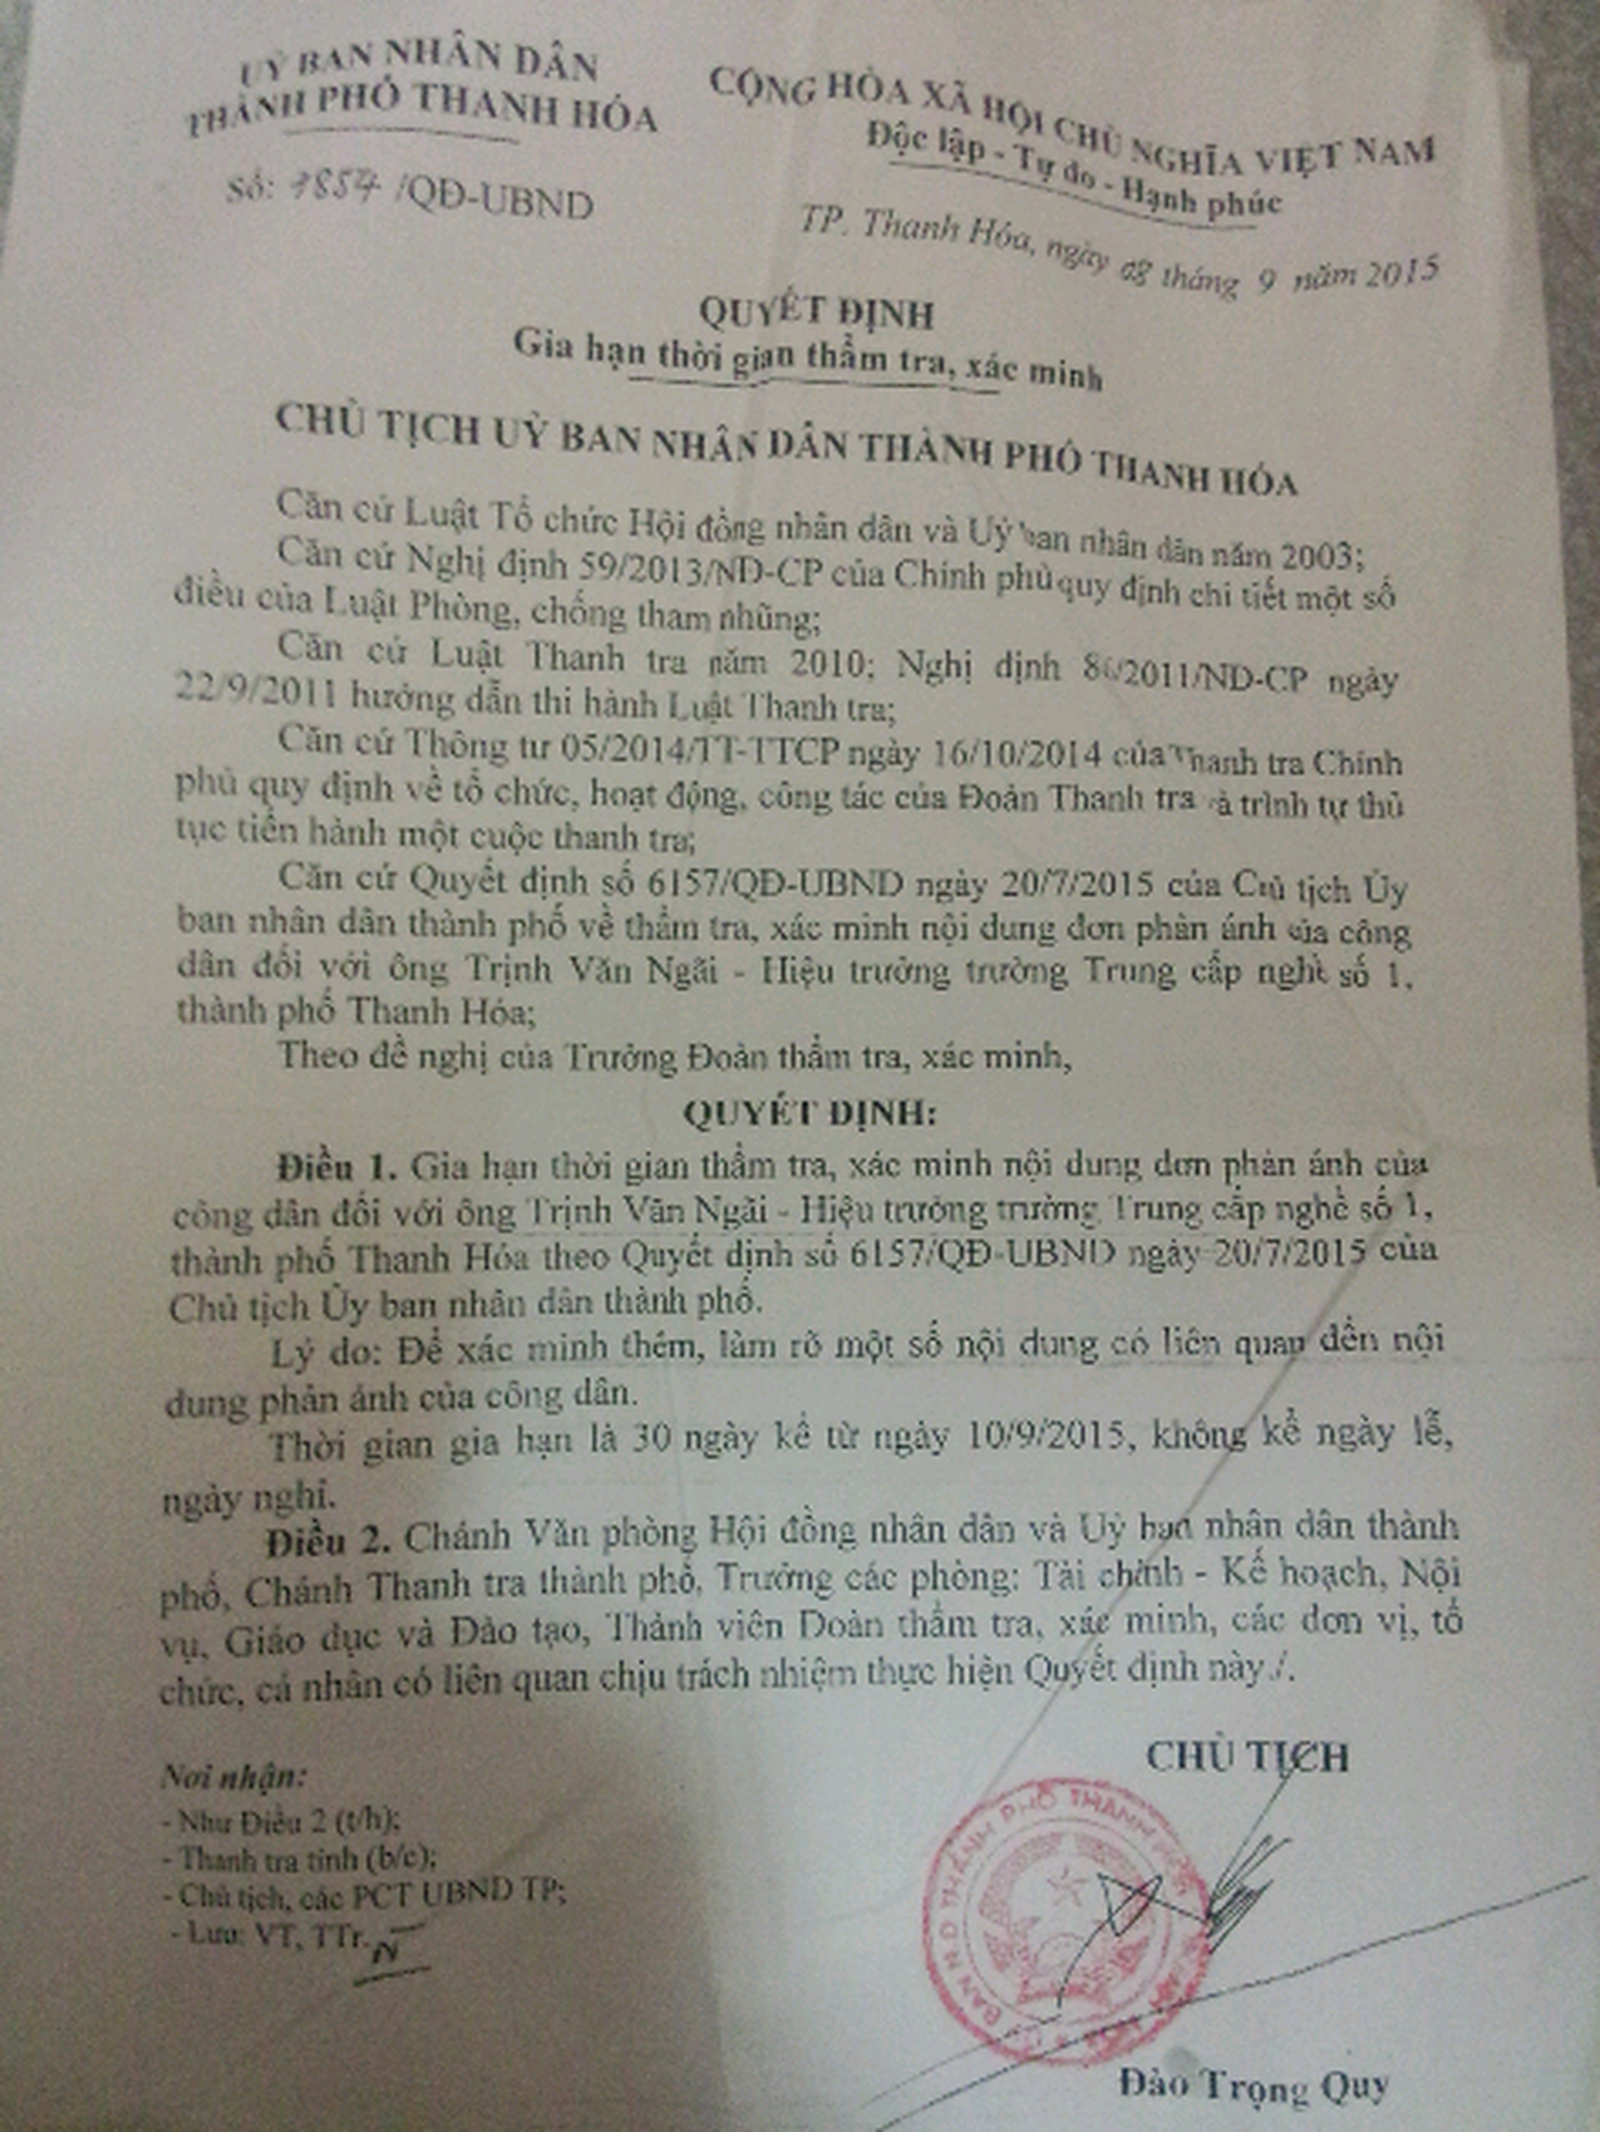 UỶ BAN NHÂN DÂN
THÀNH PHỐ THANH HÓA
CỘNG HÒA XÃ HỘI CHỦ NGHĨA VIỆT NAM
Độc lập - Tự do - Hạnh phúc
Số: /QĐ-UBND
TP. Thanh Hóa, ngày 08 tháng 9 năm 2015
QUYẾT ĐỊNH
Gia hạn thời gian thẩm tra, xác minh
CHỦ TỊCH UỶ BAN NHÂN DÂN THÀNH PHỐ THANH HÓA
Căn cứ Luật Tổ chức Hội đồng nhân dân và Uỷ ban nhân dân năm 2003;
Căn cứ Nghị định 59/2013/NĐ-CP của Chính phủ quy định chi tiết một số
điều của Luật Phòng, chống tham nhũng;
Căn cứ Luật Thanh tra năm 2010; Nghị định 86/2011/NĐ-CP ngày
22/9/2011 hướng dẫn thi hành Luật Thanh tra;
Căn cứ Thông tư 05/2014/TT-TTCP ngày 16/10/2014 của Thanh tra Chính
phủ quy định về tổ chức, hoạt động, công tác của Đoàn Thanh tra và trình tự thủ
tục tiến hành một cuộc thanh tra;
Căn cứ Quyết định số 6157/QĐ-UBND ngày 20/7/2015 của Chủ tịch Ủy
ban nhân dân thành phố về thẩm tra, xác minh nội dung đơn phản ánh của công
dân đối với ông Trịnh Văn Ngãi - Hiệu trưởng trường Trung cấp nghề số 1,
thành phố Thanh Hóa;
Theo đề nghị của Trưởng Đoàn thẩm tra, xác minh,
QUYẾT ĐỊNH:
Điều 1. Gia hạn thời gian thẩm tra, xác minh nội dung đơn phản ánh của
công dân đối với ông Trịnh Văn Ngãi - Hiệu trưởng trường Trung cấp nghề số 1,
thành phố Thanh Hóa theo Quyết định số 6157/QĐ-UBND ngày 20/7/2015 của
Chủ tịch Ủy ban nhân dân thành phố.
Lý do: Để xác minh thêm, làm rõ một số nội dung có liên quan đến nội
dung phản ánh của công dân.
Thời gian gia hạn là 30 ngày kể từ ngày 10/9/2015, không kể ngày lễ,
ngày nghỉ.
Điều 2. Chánh Văn phòng Hội đồng nhân dân và Uỷ ban nhân dân thành
phố, Chánh Thanh tra thành phố, Trưởng các phòng: Tài chính - Kế hoạch, Nội
vụ, Giáo dục và Đào tạo, Thành viên Đoàn thẩm tra, xác minh, các đơn vị, tổ
chức, cá nhân có liên quan chịu trách nhiệm thực hiện Quyết định này./.
CHỦ TỊCH
Nơi nhận:
- Như Điều 2 (t/h);
- Thanh tra tỉnh (b/c);
- Chủ tịch, các PCT UBND TP;
- Lưu: VT, TTr.
Đào Trọng Quy